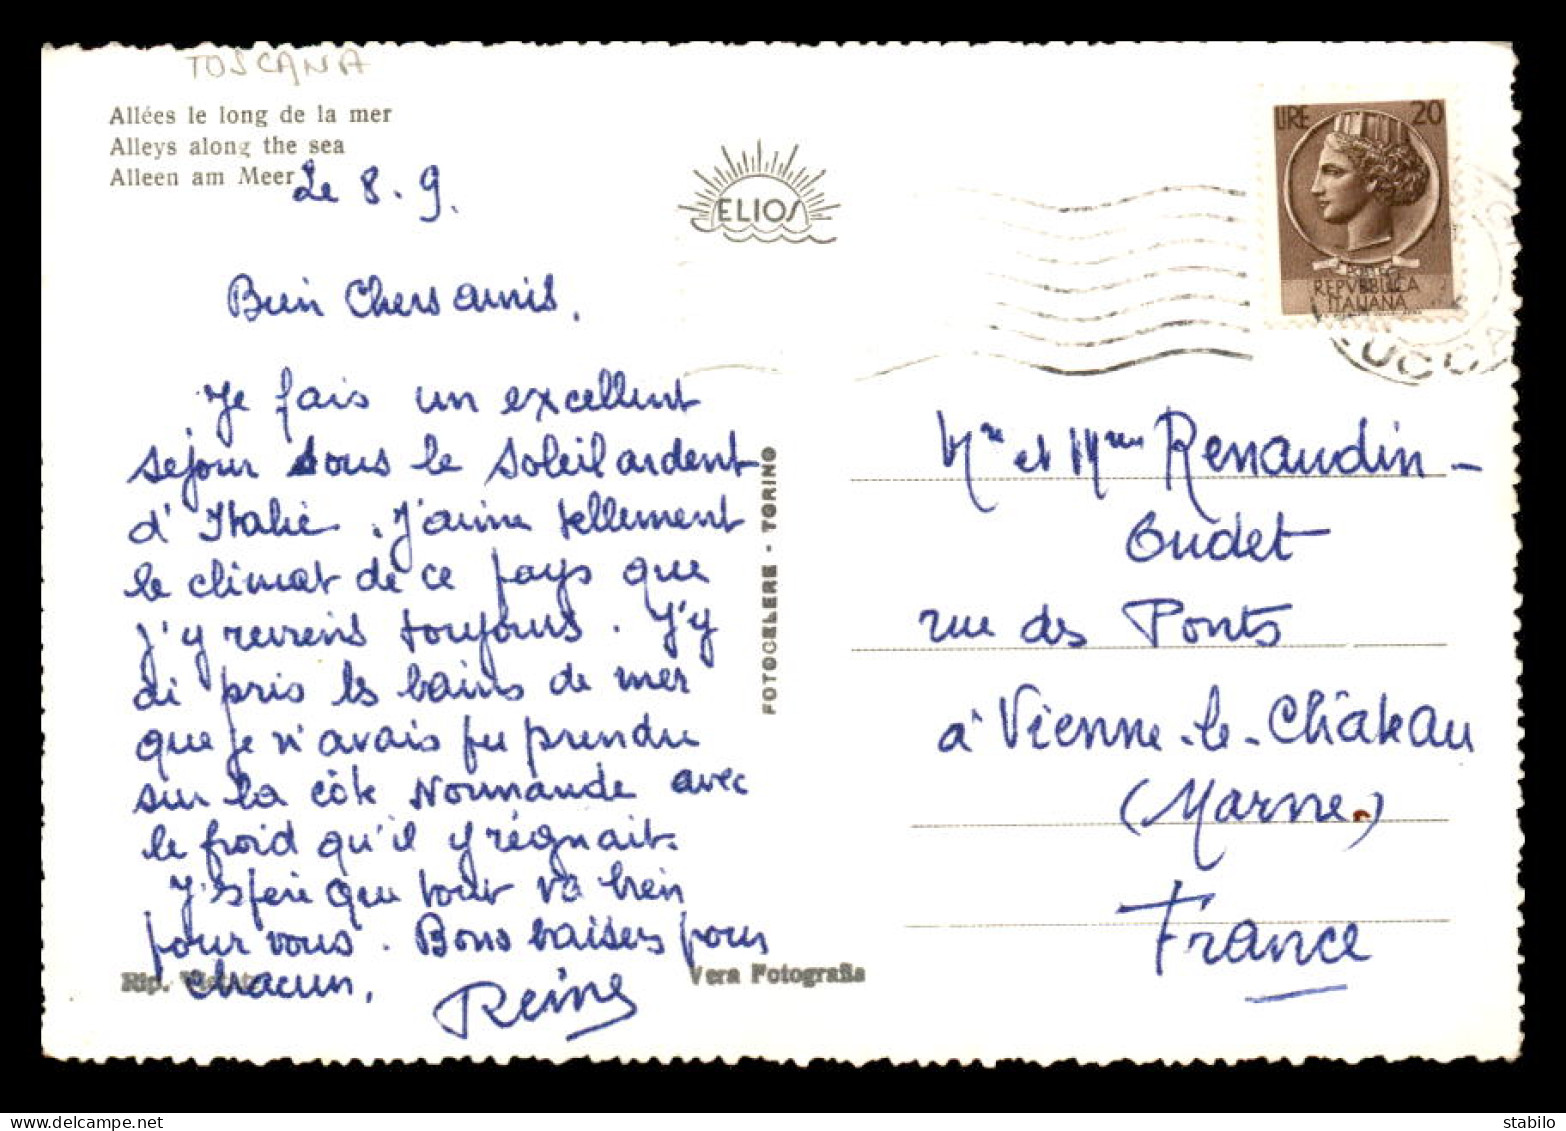 TOSCANA
Allées le long de la mer
Alleys along the sea
Alleen am Meer
Le 8.9.
ELIOS
LIRE 20
REPVBBLICA
ITALIANA
LUCCA
Bien Chers amis,
Je fais un excellent
séjour sous le soleil ardent
d'Italie. J'aime tellement
le climat de ce pays que
j'y reviens toujours. J'y
ai pris les bains de mer
que je n'avais pu prendre
sur la côte Normande avec
le froid qu'il y régnait.
J'espère que tout va bien
pour vous. Bons baisers pour
chacun,
Reine
Rip. Vietata
Vera Fotografia
FOTOCELERE - TORINO
Mr et Mme Renaudin-
Oudet
rue des Ponts
à Vienne-le-Château
(Marne)
France
delcampe.net
stabilo